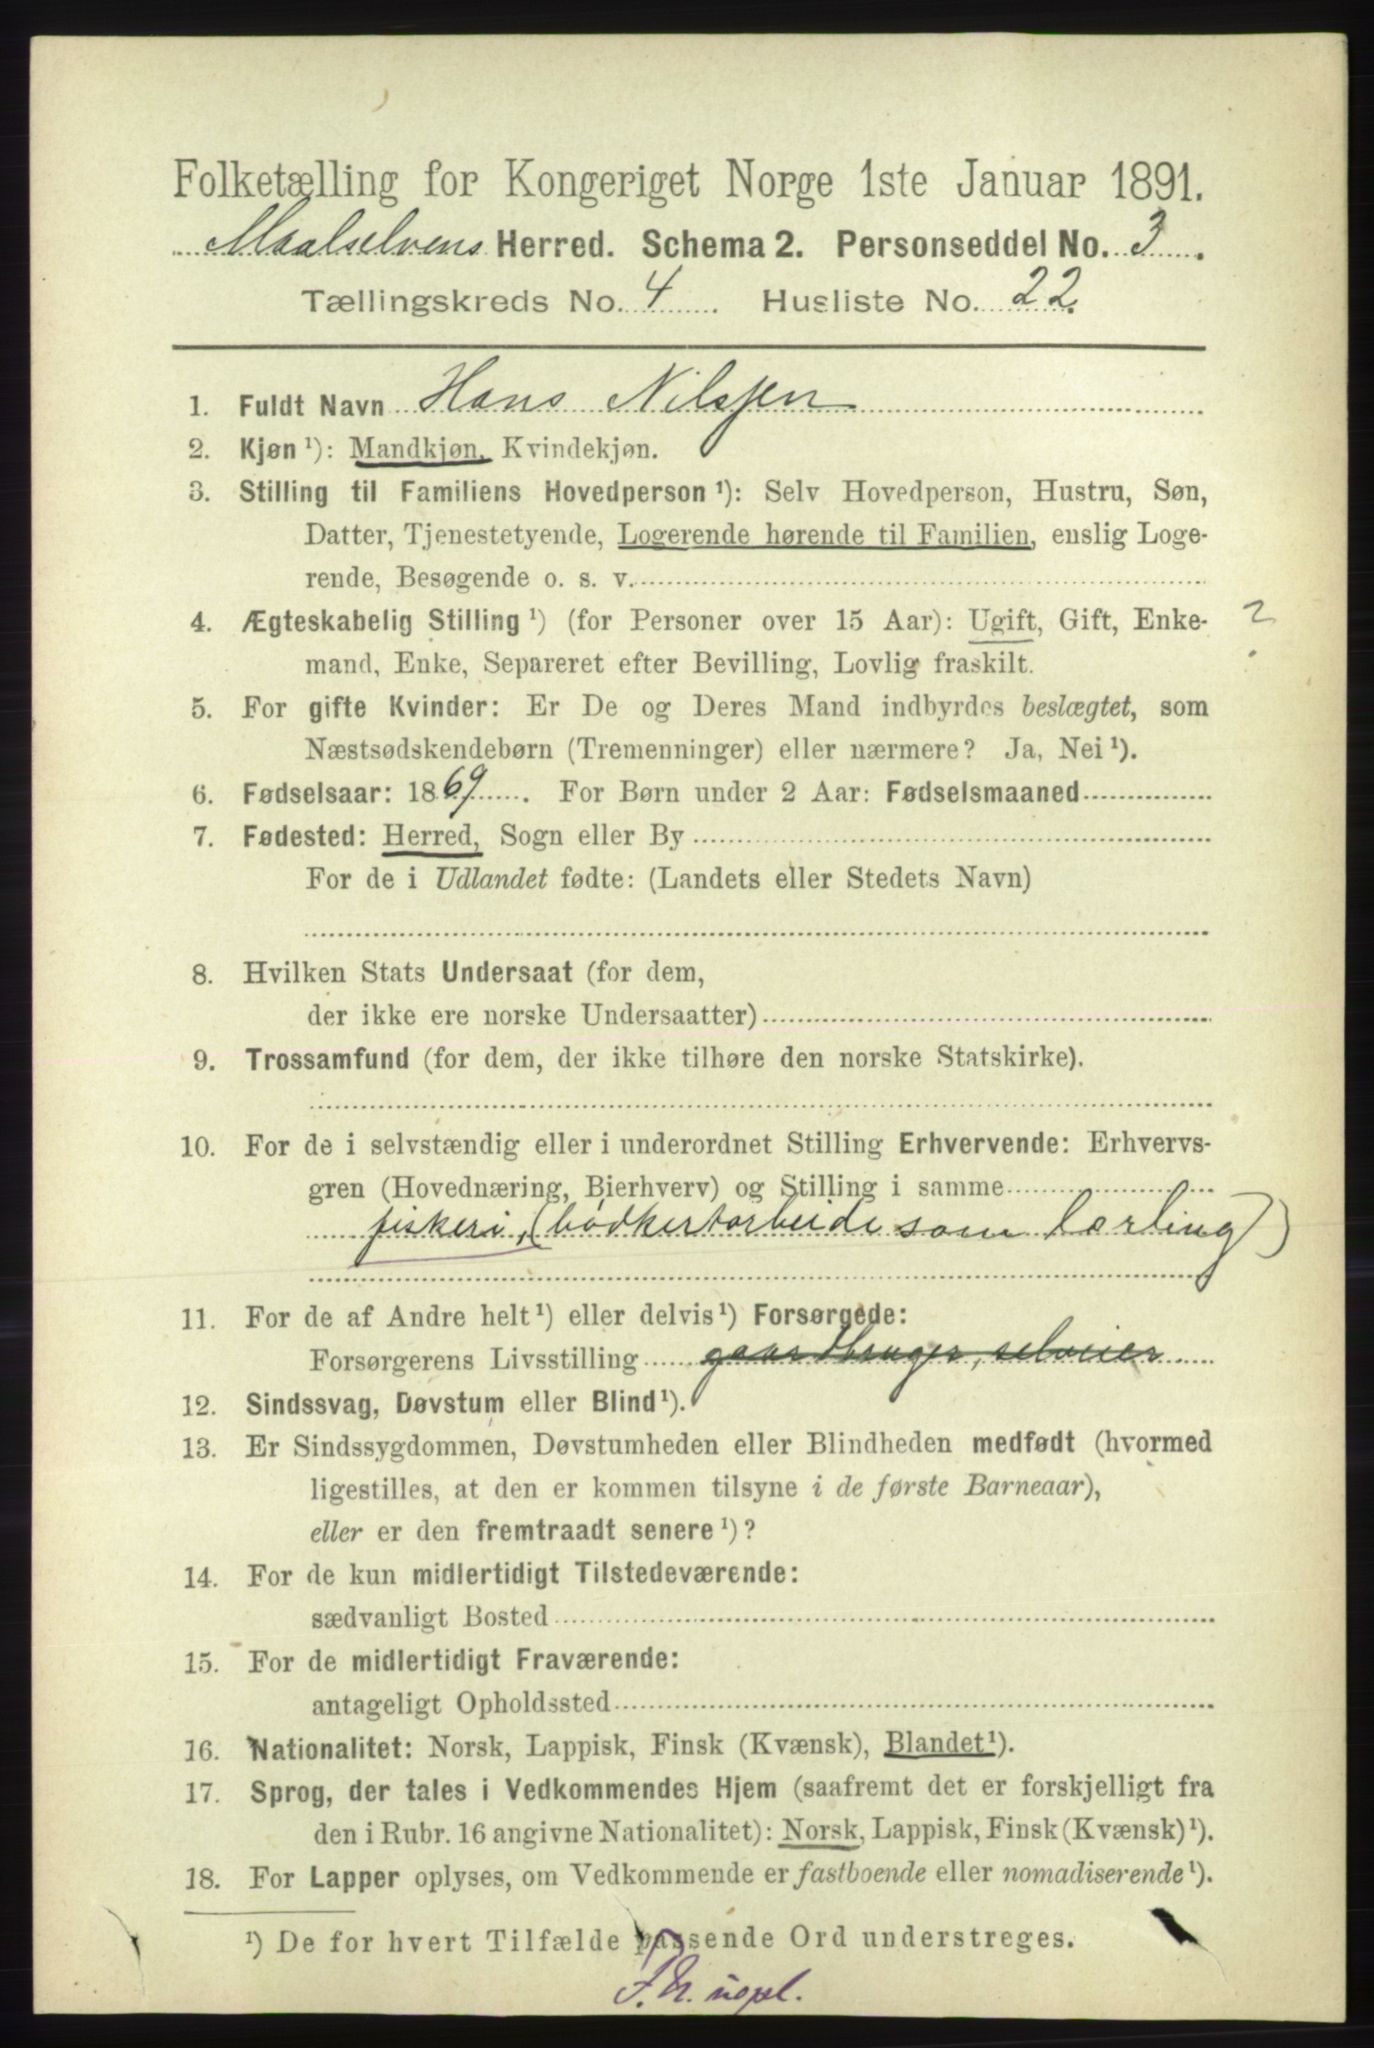 Folketælling for Kongeriget Norge 1ste Januar 1891.
Maalselvens Herred. Schema 2. Personseddel No. 3.
Tællingskreds No. 4 Husliste No. 22.
1. Fuldt Navn Hans Nilsjen
2. Kjøn¹): Mandkjøn, Kvindekjøn.
3. Stilling til Familiens Hovedperson¹): Selv Hovedperson, Hustru, Søn,
Datter, Tjenestetyende, Logerende hørende til Familien, enslig Loge-
rende, Besøgende o. s. v.
4. Ægteskabelig Stilling¹) (for Personer over 15 Aar): Ugift, Gift, Enke- ?
mand, Enke, Separeret efter Bevilling, Lovlig fraskilt.
5. For gifte Kvinder: Er De og Deres Mand indbyrdes beslægtet, som
Næstsødskendebørn (Tremenninger) eller nærmere? Ja, Nei¹).
6. Fødselsaar: 1869. For Børn under 2 Aar: Fødselsmaaned
7. Fødested: Herred, Sogn eller By
For de i Udlandet fødte: (Landets eller Stedets Navn)
8. Hvilken Stats Undersaat (for dem,
der ikke ere norske Undersaatter)
9. Trossamfund (for dem, der ikke tilhøre den norske Statskirke).
10. For de i selvstændig eller i underordnet Stilling Erhvervende: Erhvervs-
gren (Hovednæring, Bierhverv) og Stilling i samme
fiskeri, (bødkerarbeide som lærling)
11. For de af Andre helt¹) eller delvis¹) Forsørgede:
Forsørgerens Livsstilling gaardbruger, selveier
12. Sindssvag, Døvstum eller Blind¹).
13. Er Sindssygdommen, Døvstumheden eller Blindheden medfødt (hvormed
ligestilles, at den er kommen tilsyne i de første Barneaar),
eller er den fremtraadt senere¹)?
14. For de kun midlertidigt Tilstedeværende:
sædvanligt Bosted
15. For de midlertidigt Fraværende:
antageligt Opholdssted
16. Nationalitet: Norsk, Lappisk, Finsk (Kvænsk), Blandet¹).
17. Sprog, der tales i Vedkommendes Hjem (saafremt det er forskjelligt fra
den i Rubr. 16 angivne Nationalitet): Norsk, Lappisk, Finsk (Kvænsk)¹).
18. For Lapper oplyses, om Vedkommende er fastboende eller nomadiserende¹).
¹) De for hvert Tilfælde passende Ord understreges.